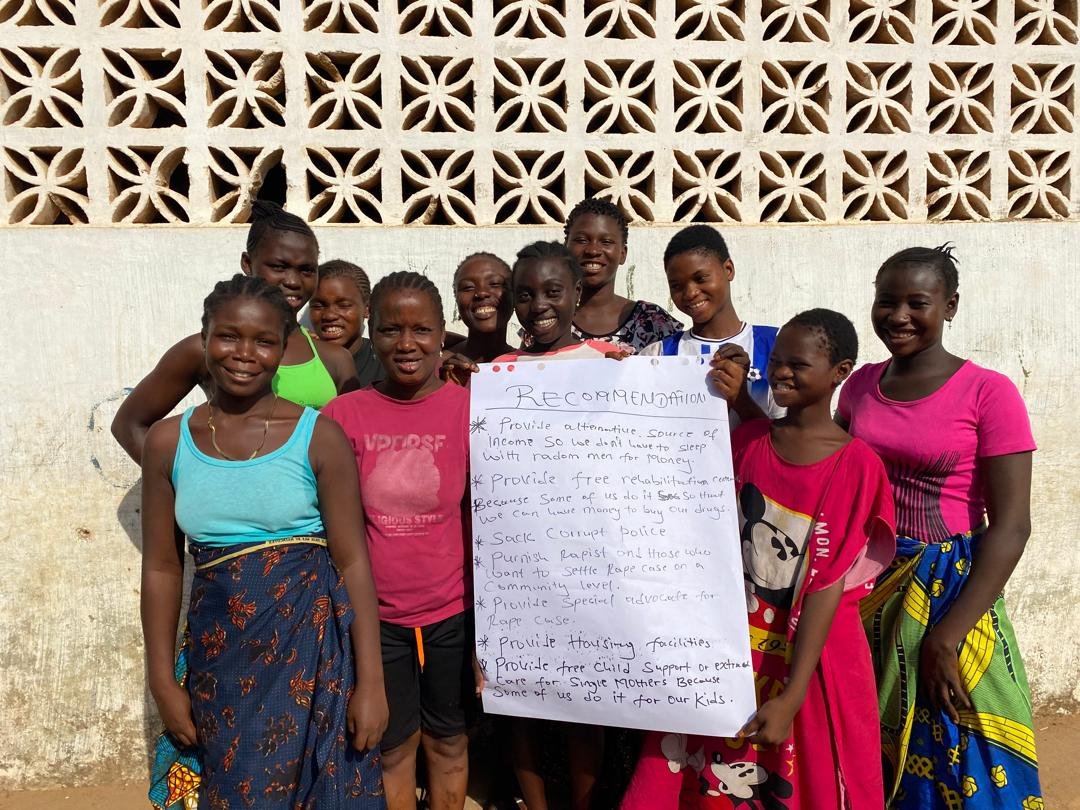 RECOMMENDATION
* Provide alternative source of
Income so we don't have to sleep
with radom men for money.
* Provide free rehabilitation center
Because some of us do it so that
we can have money to buy our drugs.
* Sack Corrupt Police
* Purnish Rapist and those who
want to settle Rape case on a
Community level.
* Provide special advocate for
Rape case.
* Provide Housing facilities
* Provide free child support or extra
Care for single Mothers Because
some of us do it for our kids.